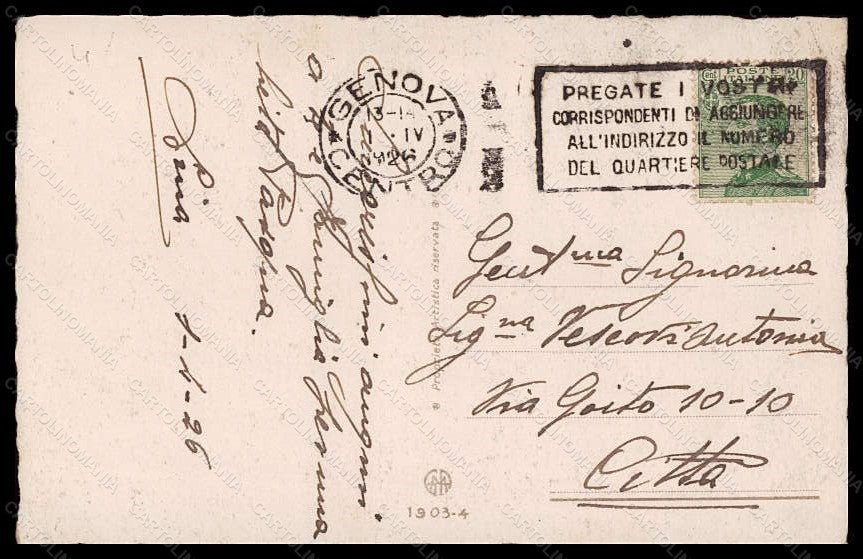 GENOVA
13-1
IV
1926
CENTRO
PREGATE I VOSTRI
CORRISPONDENTI DI AGGIUNGERE
ALL'INDIRIZZO IL NUMERO
DEL QUARTIERE POSTALE
POSTE
ITALIANE
Cent 20
auguri
a te e famiglia
Pasqua.
1-4-26
Gent.ma Signorina
Sig.na Vescovi Antonia
Via Goito 10-10
Città
Proprietà artistica riservata
1903-4
CARTOLINOMANIA